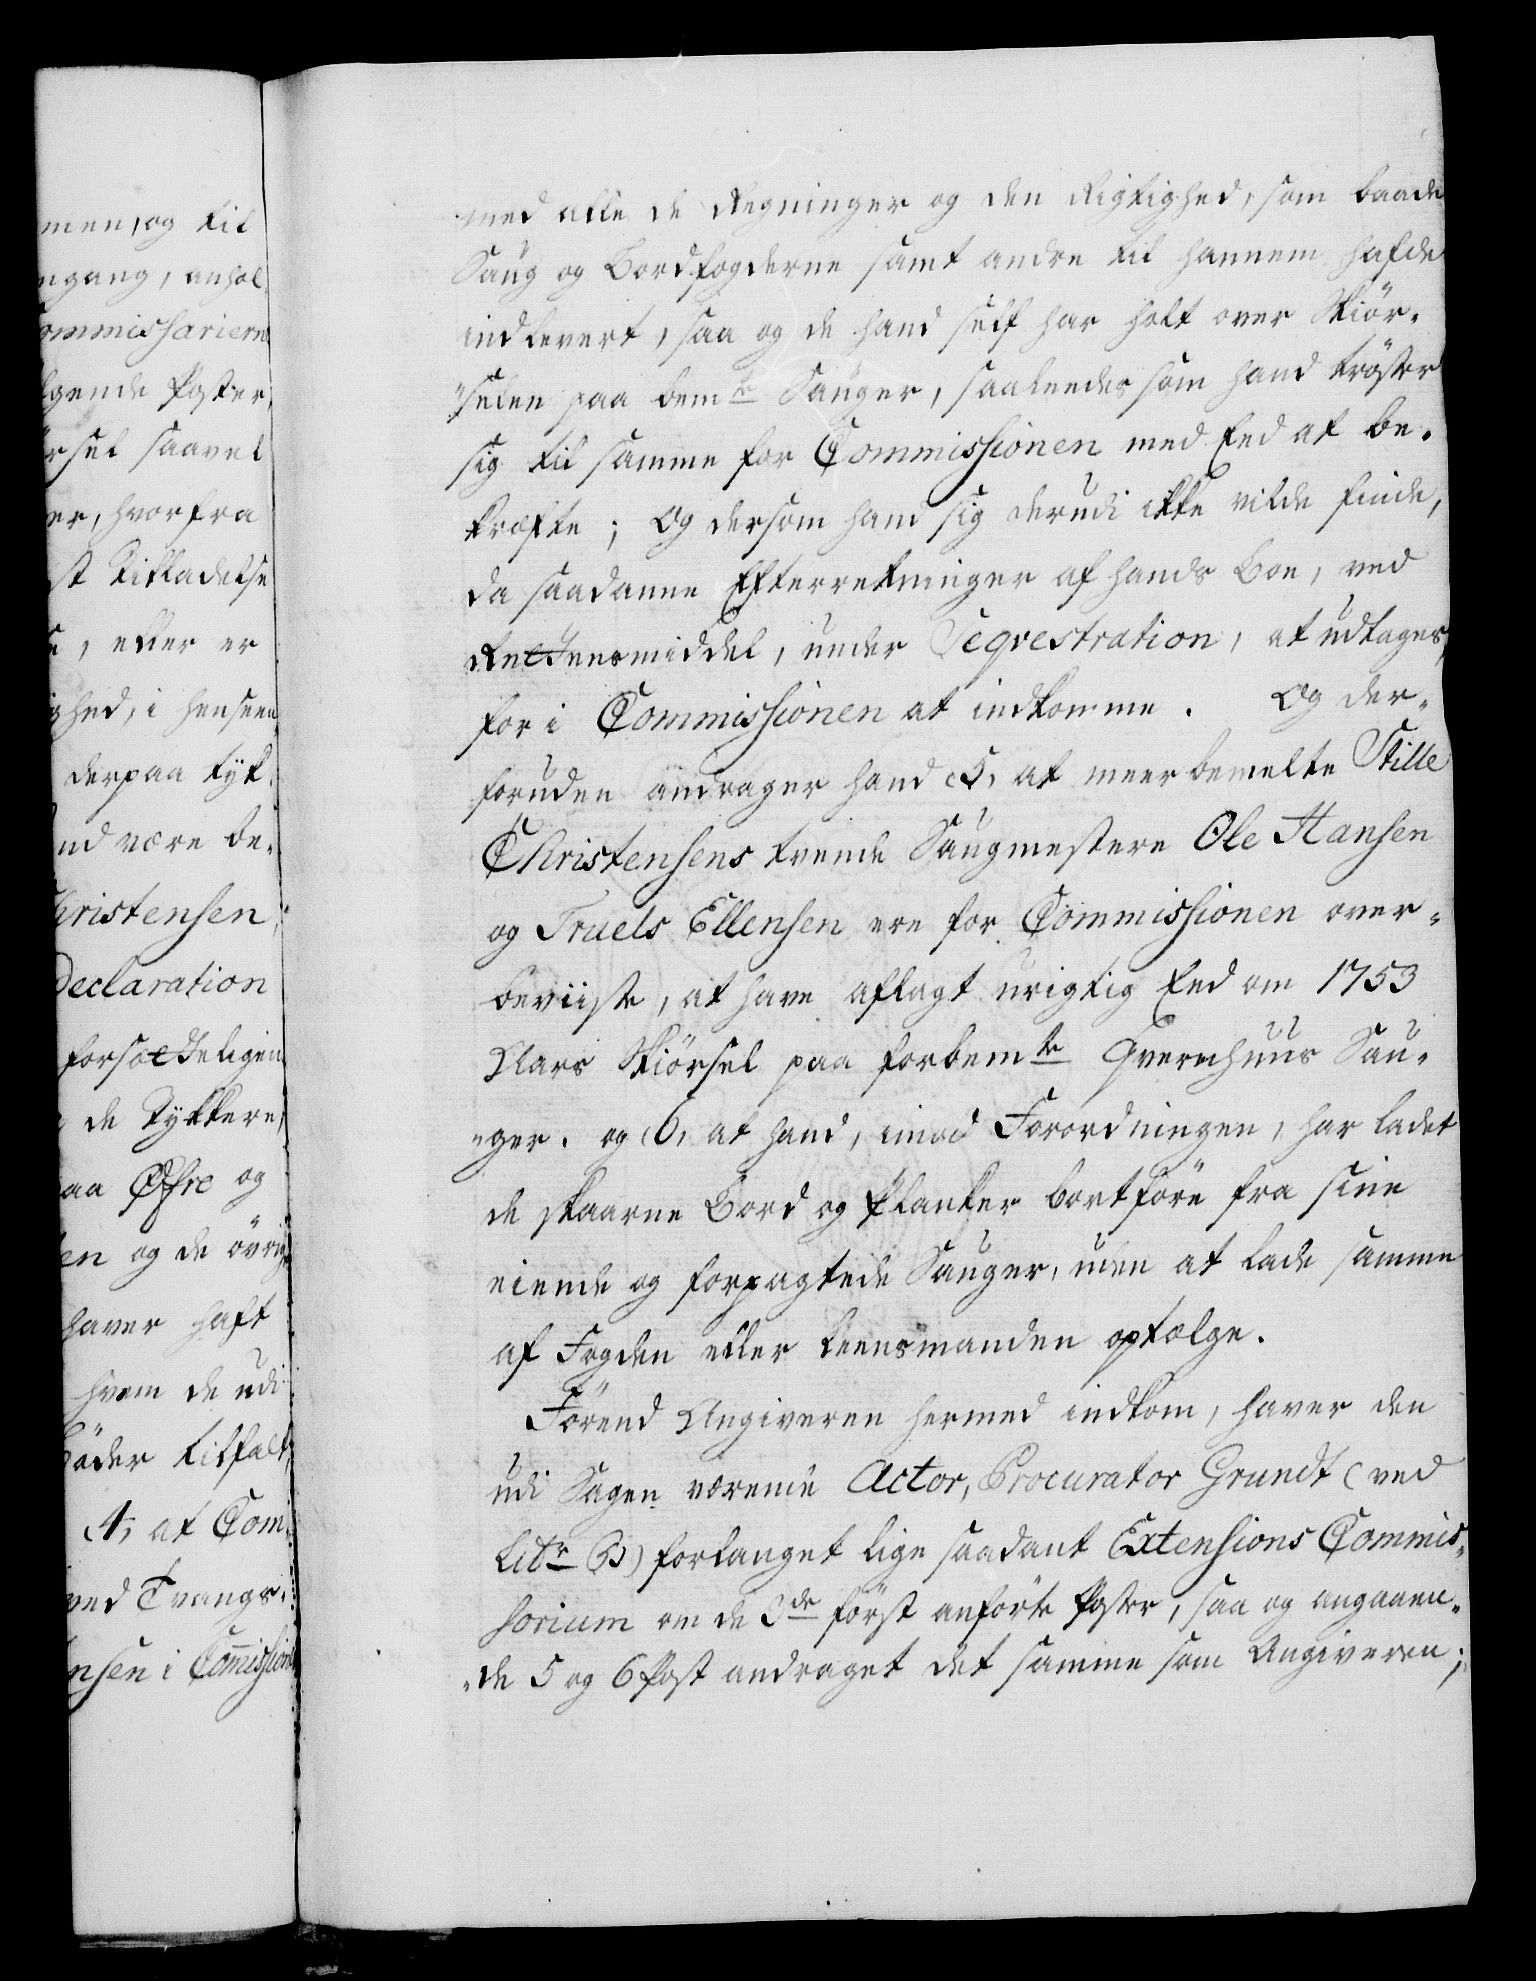 men, og til
ngang, anhol
ommissarierne
lgende Poster,
rsel saavel
er, hvorfra
st Tilladelse
e, eller er
ghed, i henseen
derpaa tyk
nd være be-
hristensen,
Declaration
forsættligen
de Tykkere,
aa Øfre og
en og de övrig
haver haft
hvem de udi
öder tilfalt,
4, at Com
ved Tvangs-
nsen i Commission
med alle de Regninger og den Rigtighed, som baade
Saug og Bordfogderne samt andre til hannem hafde
indlevert, saa og de hand self har holt over Skiör-
"selen paa bemte Sauger, saaleedes som hand tröster
sig til samme for Commissionen med Eed at be-
kræfte; Og dersom hand sig derudi ikke vilde finde,
da saadanne Efterretninger af hands Boe, ved
Rettensmiddel, under Seqvestration, at udtages,
for i Commissionen at indkomme. Og der-
foruden andrager hand 5, at meerbemelte Stille
Christensens tvende Saugmestere Ole Hansen
og Truels Ellensen ere for Commissionen over-
beviiste, at have aflagt urigtig Eed om 1753
Aars Skiörsel paa forbemte Qvernhuus Sau-
"ger. og 6, at hand, imod Forordningen, har ladet
de skaarne Bord og Planker bortföre fra sine
eiende og forpagtede Sauger, uden at lade samme
af Fogden eller Leensmanden optælge.
Förend Angiveren hermed indkom, haver den
udi Sagen værende Actor, Procurator Grundt (ved
Litr B) forlanget lige saadant Extensions Commis-
sorium om de 3de först anförte Poster, saa og angaaen-
"de 5 og 6 Post andraget det samme som Angiveren;